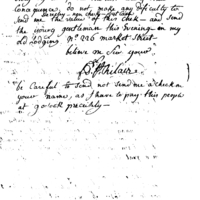 consequence, do not make any difficulty to
send me the value of this check - and send
the young gentleman this evening in my
old lodging N° 226 market street
believe me Sir yours
be Careful to send not send me a check in
your name, as I have to pay this people
at 9 o'clock precisely